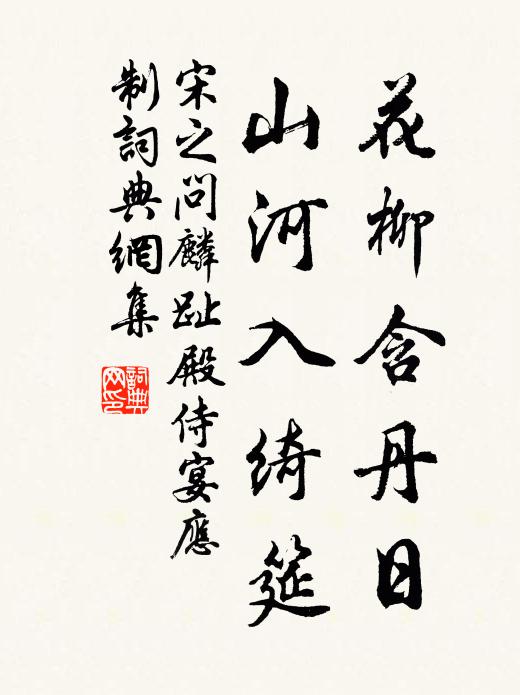 花柳含丹日
山河入綺筵
宋之问麟趾殿侍宴應
制詞典網集
詞典
网印